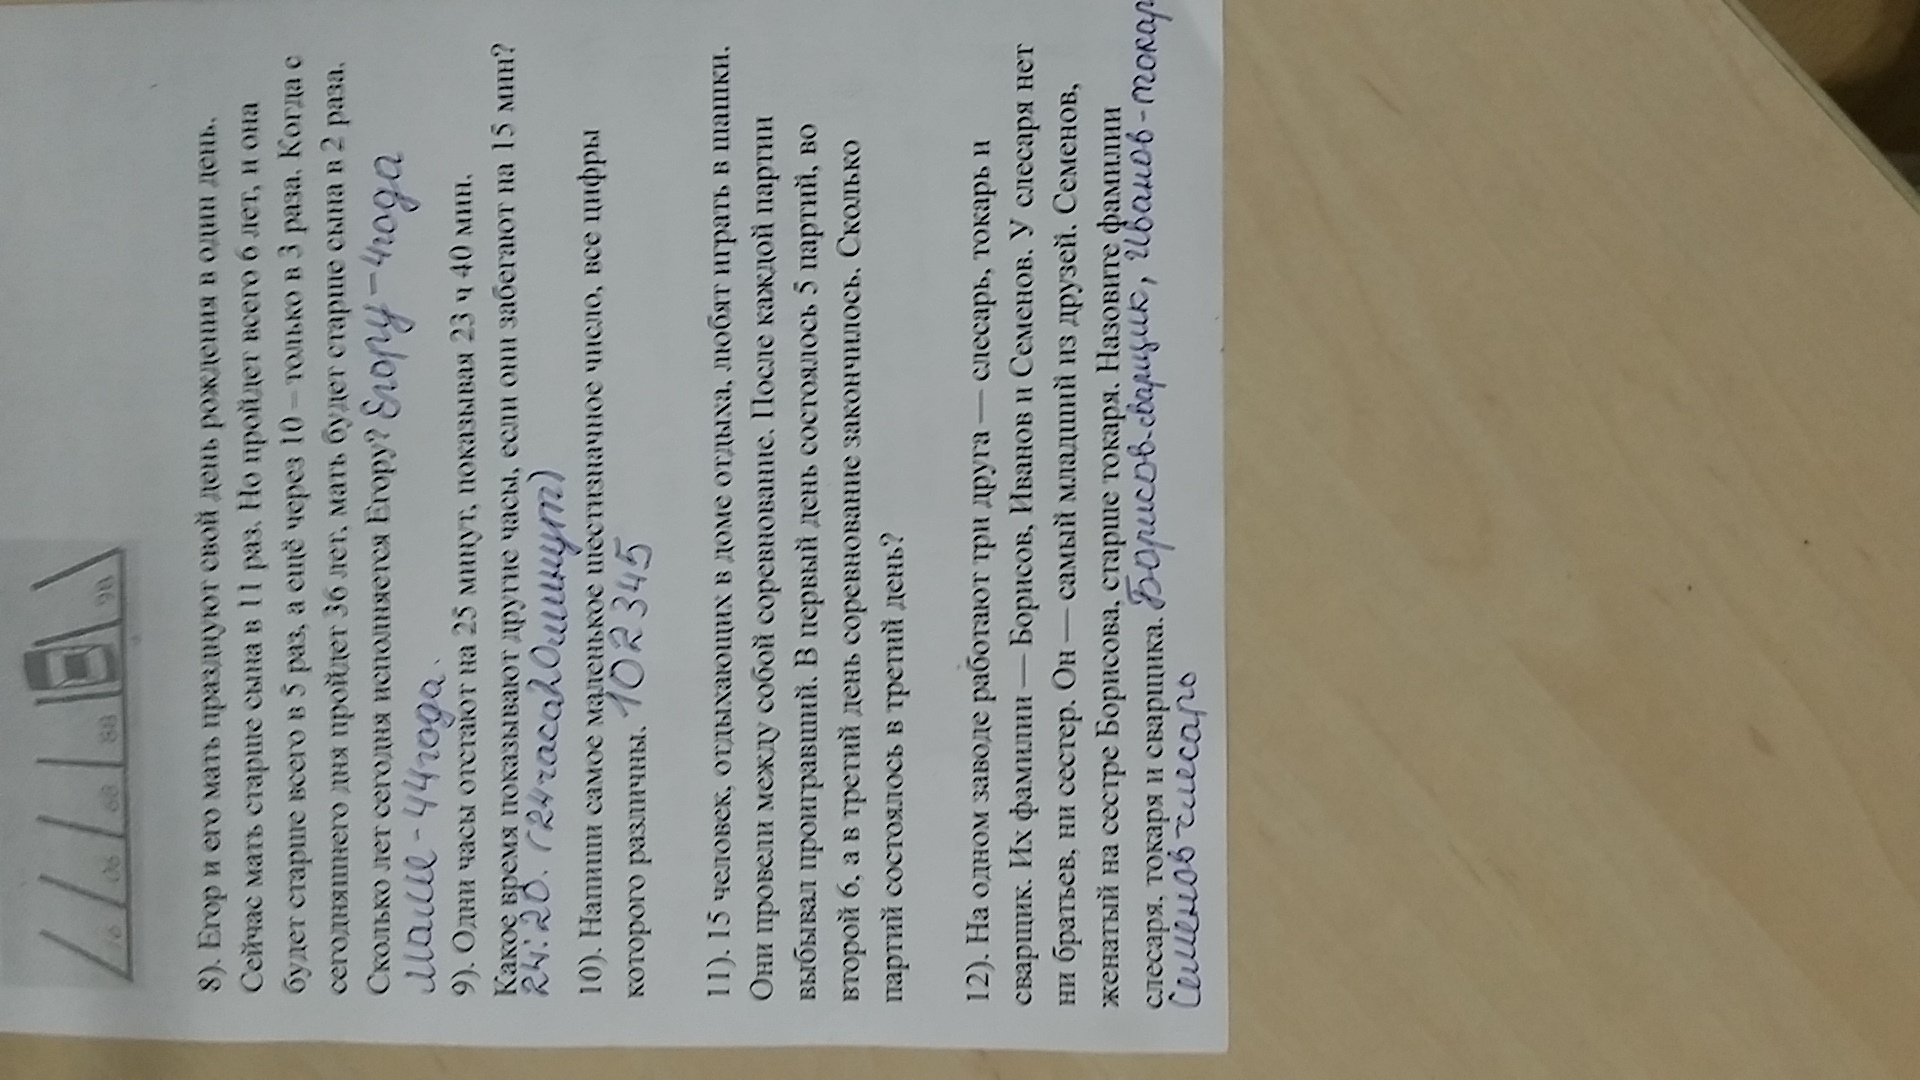 8). Егор и его мать празднуют свой день рождения в один день.
Сейчас мать старше сына в 11 раз. Но пройдет всего 6 лет, и она
будет старше всего в 5 раз, а ещё через 10 – только в 3 раза. Когда с
сегодняшнего дня пройдет 36 лет, мать будет старше сына в 2 раза.
Сколько лет сегодня исполняется Егору? Егору - 4 года
маме - 44 года.
9). Одни часы отстают на 25 минут, показывая 23 ч 40 мин.
Какое время показывают другие часы, если они забегают на 15 мин?
24:20. (24 часа 20 минут)
10). Напиши самое маленькое шестизначное число, все цифры
которого различны. 102345
11). 15 человек, отдыхающих в доме отдыха, любят играть в шашки.
Они провели между собой соревнование. После каждой партии
выбывал проигравший. В первый день состоялось 5 партий, во
второй 6, а в третий день соревнование закончилось. Сколько
партий состоялось в третий день?
12). На одном заводе работают три друга — слесарь, токарь и
сварщик. Их фамилии — Борисов, Иванов и Семенов. У слесаря нет
ни братьев, ни сестер. Он — самый младший из друзей. Семенов,
женатый на сестре Борисова, старше токаря. Назовите фамилии
слесаря, токаря и сварщика. Борисов-сварщик, Иванов-токарь
Семенов-слесарь
91 90 89 88 86